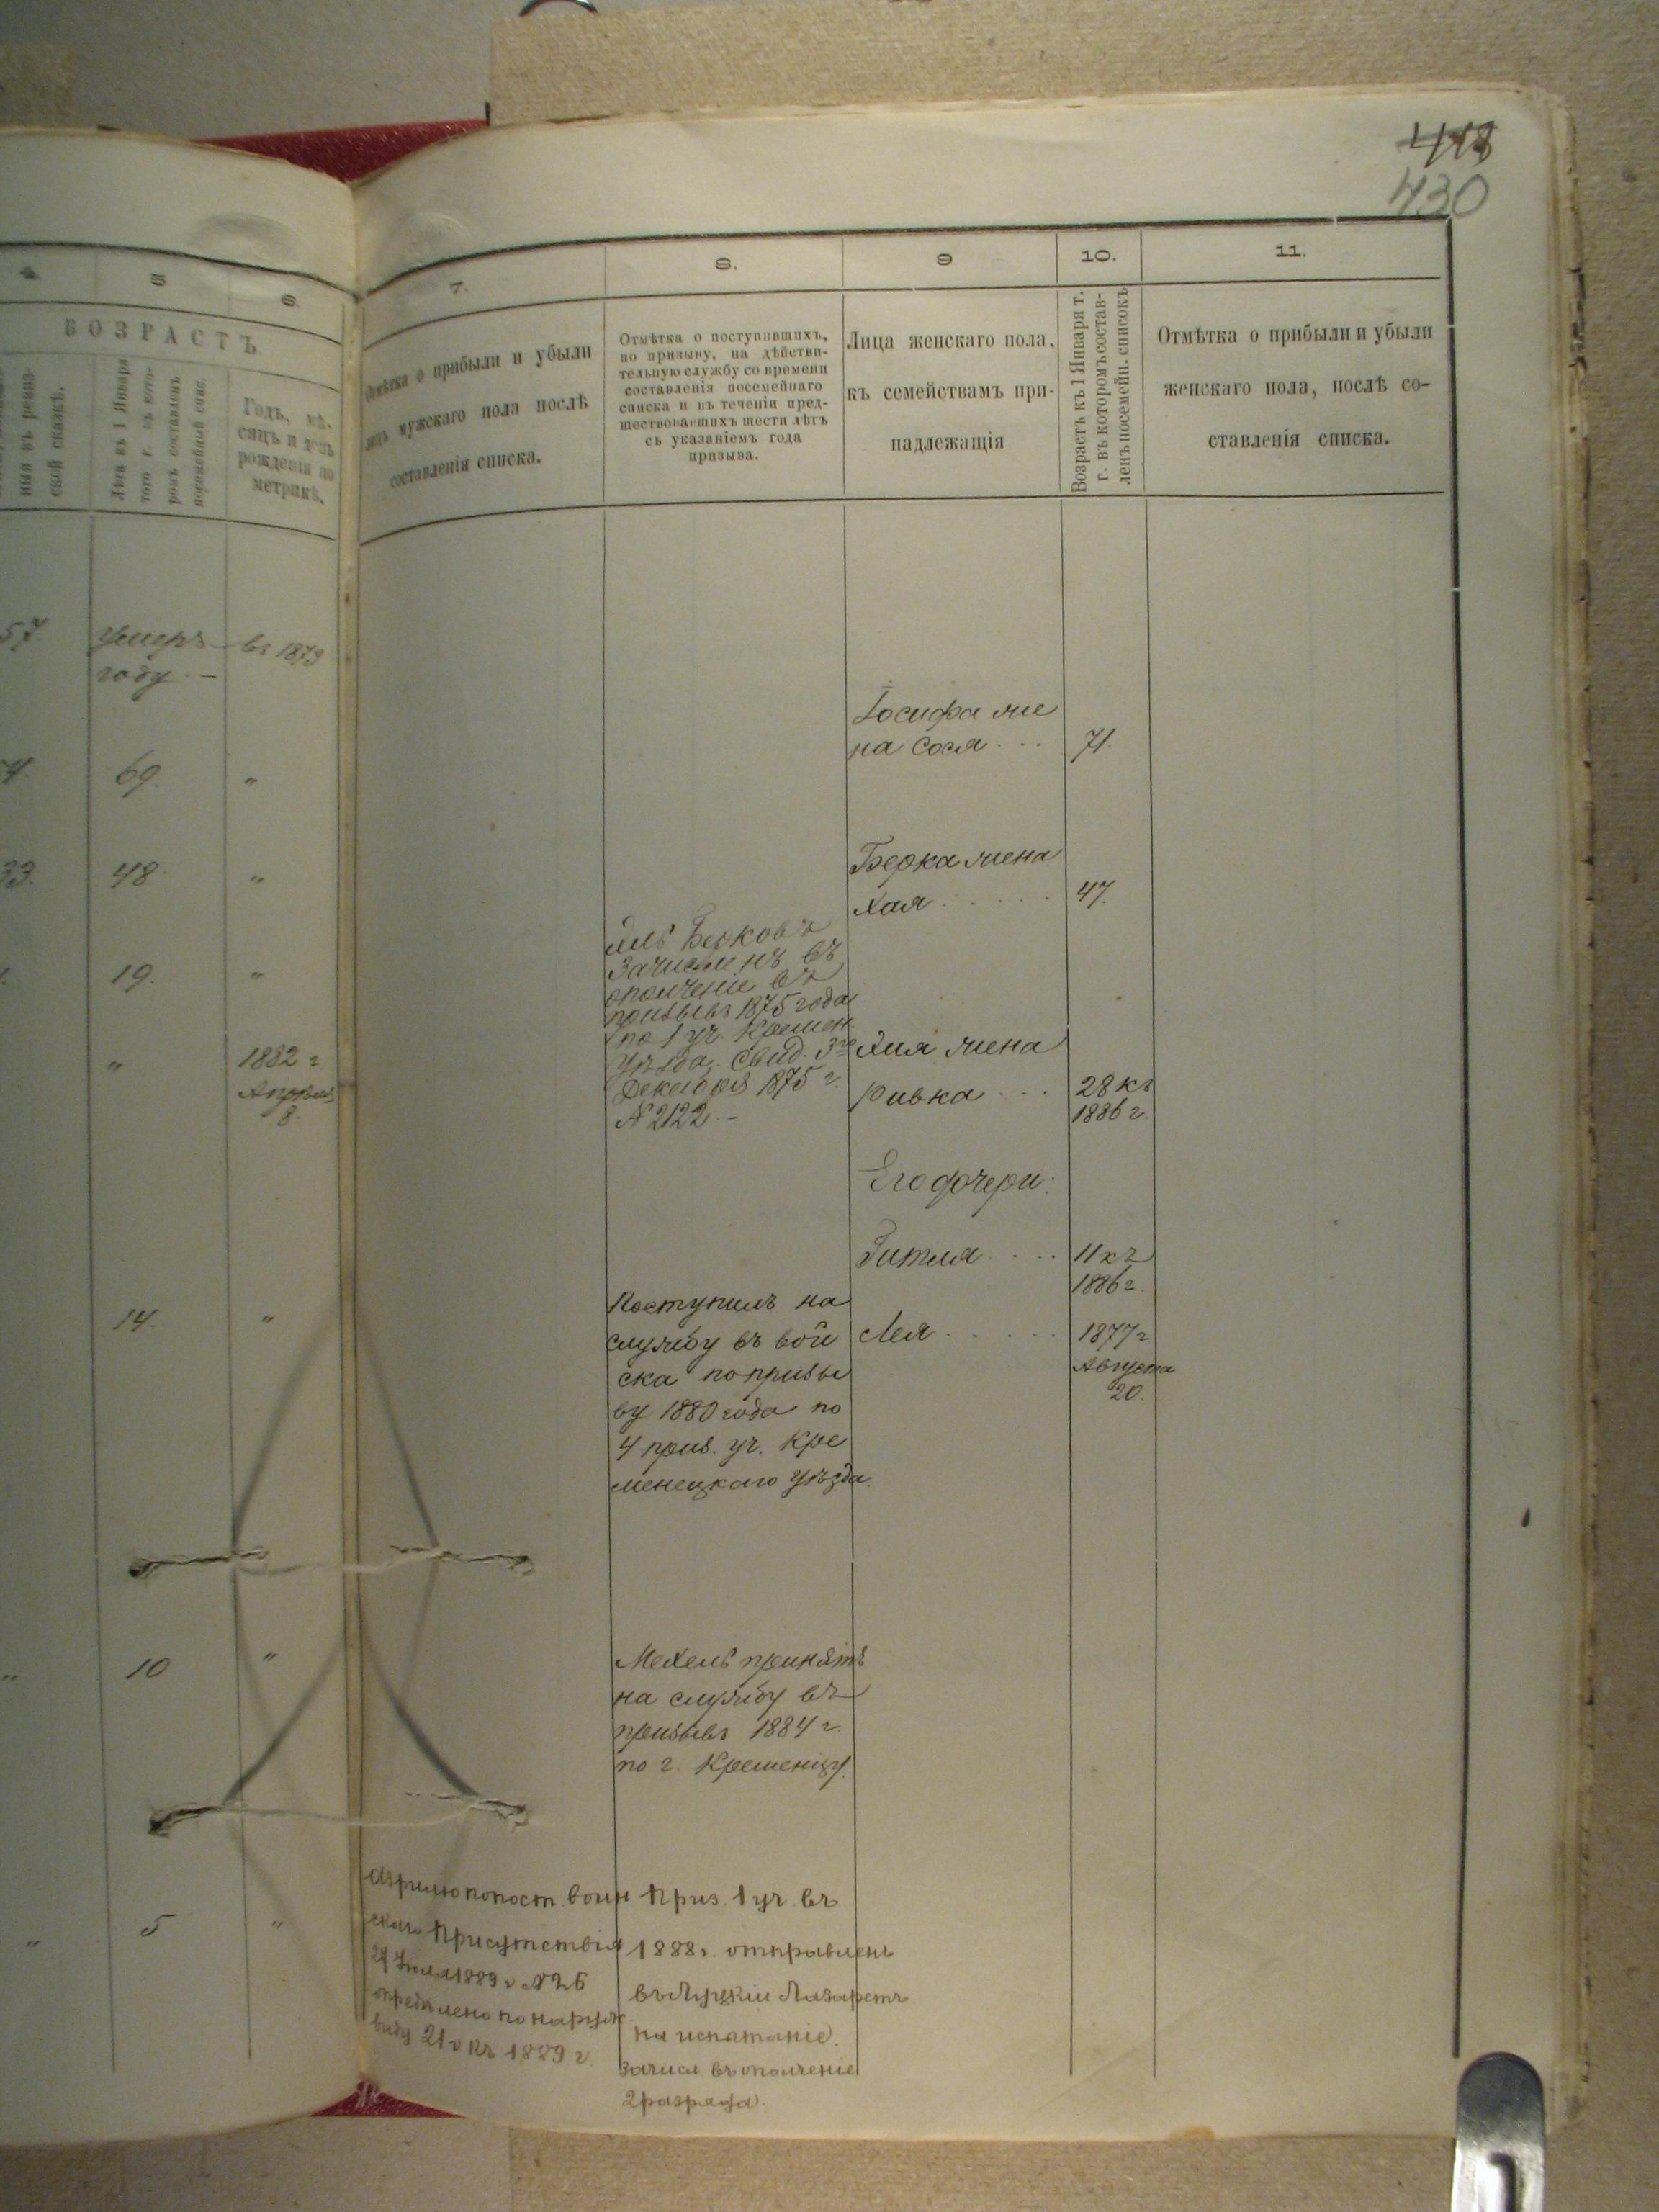 418
430
4
5
6.
7.
8.
9
10.
11.
ВОЗРАСТЪ
свой сказкѣ.
Лѣта къ 1 Января
того г. въ кото-
ромъ составленъ
посемейный спис.
Годъ, мѣ-
сяцъ и день
рожденія по
метрикѣ.
Отмѣтка о прибыли и убыли
лицъ мужскаго пола послѣ
составленія списка.
Отмѣтка о поступившихъ,
по призыву, на дѣйстви-
тельную службу со времени
составленія посемейнаго
списка и въ теченіи пред-
шествовавшихъ шести лѣтъ
съ указаніемъ года
призыва.
Лица женскаго пола,
къ семействамъ при-
надлежащія
Возрастъ къ 1 Января т.
г. въ которомъ состав-
ленъ посемейн. списокъ
Отмѣтка о прибыли и убыли
женскаго пола, послѣ со-
ставленія списка.
57. умеръ въ 1873
году. —
Іосифа же
на Сося . . . 71.
69. "
Берка жена
Хая . . . . . 47.
33. 48 "
Берковъ
Зачисленъ въ
ополченіе въ
призывъ 1875 года
по 1 уч. Кремен.
уѣзда. Свид. 3го
Декабря 1875 г.
№ 2122. —
19. "
" 1882 г.
Апрѣля
8.
жена
Ривка . . . 28 къ
1886 г.
Его дочери:
Гитля . . . . 11 къ
1886 г.
Лея . . . . . 1877 г
Августа
20.
14. "
Поступилъ на
службу въ вой
ска по призы
ву 1880 года по
4 приз. уч. Кре
менецкаго уѣзда.
" 10 "
Мехель принятъ
на службу въ
призывъ 1884 г.
по г. Кременцу.
" 5 "
Азрилю по пост. воин
скаго Присутствія
27 Іюля 1889 г. № 26
опредѣлено по наружн.
виду 21 г къ 1889 г.
Приз. 1 уч. въ
1888 г. отправленъ
въ Луцкій Лазаретъ
на испытаніе.
Зачисл. въ ополченіе
2 разряда.